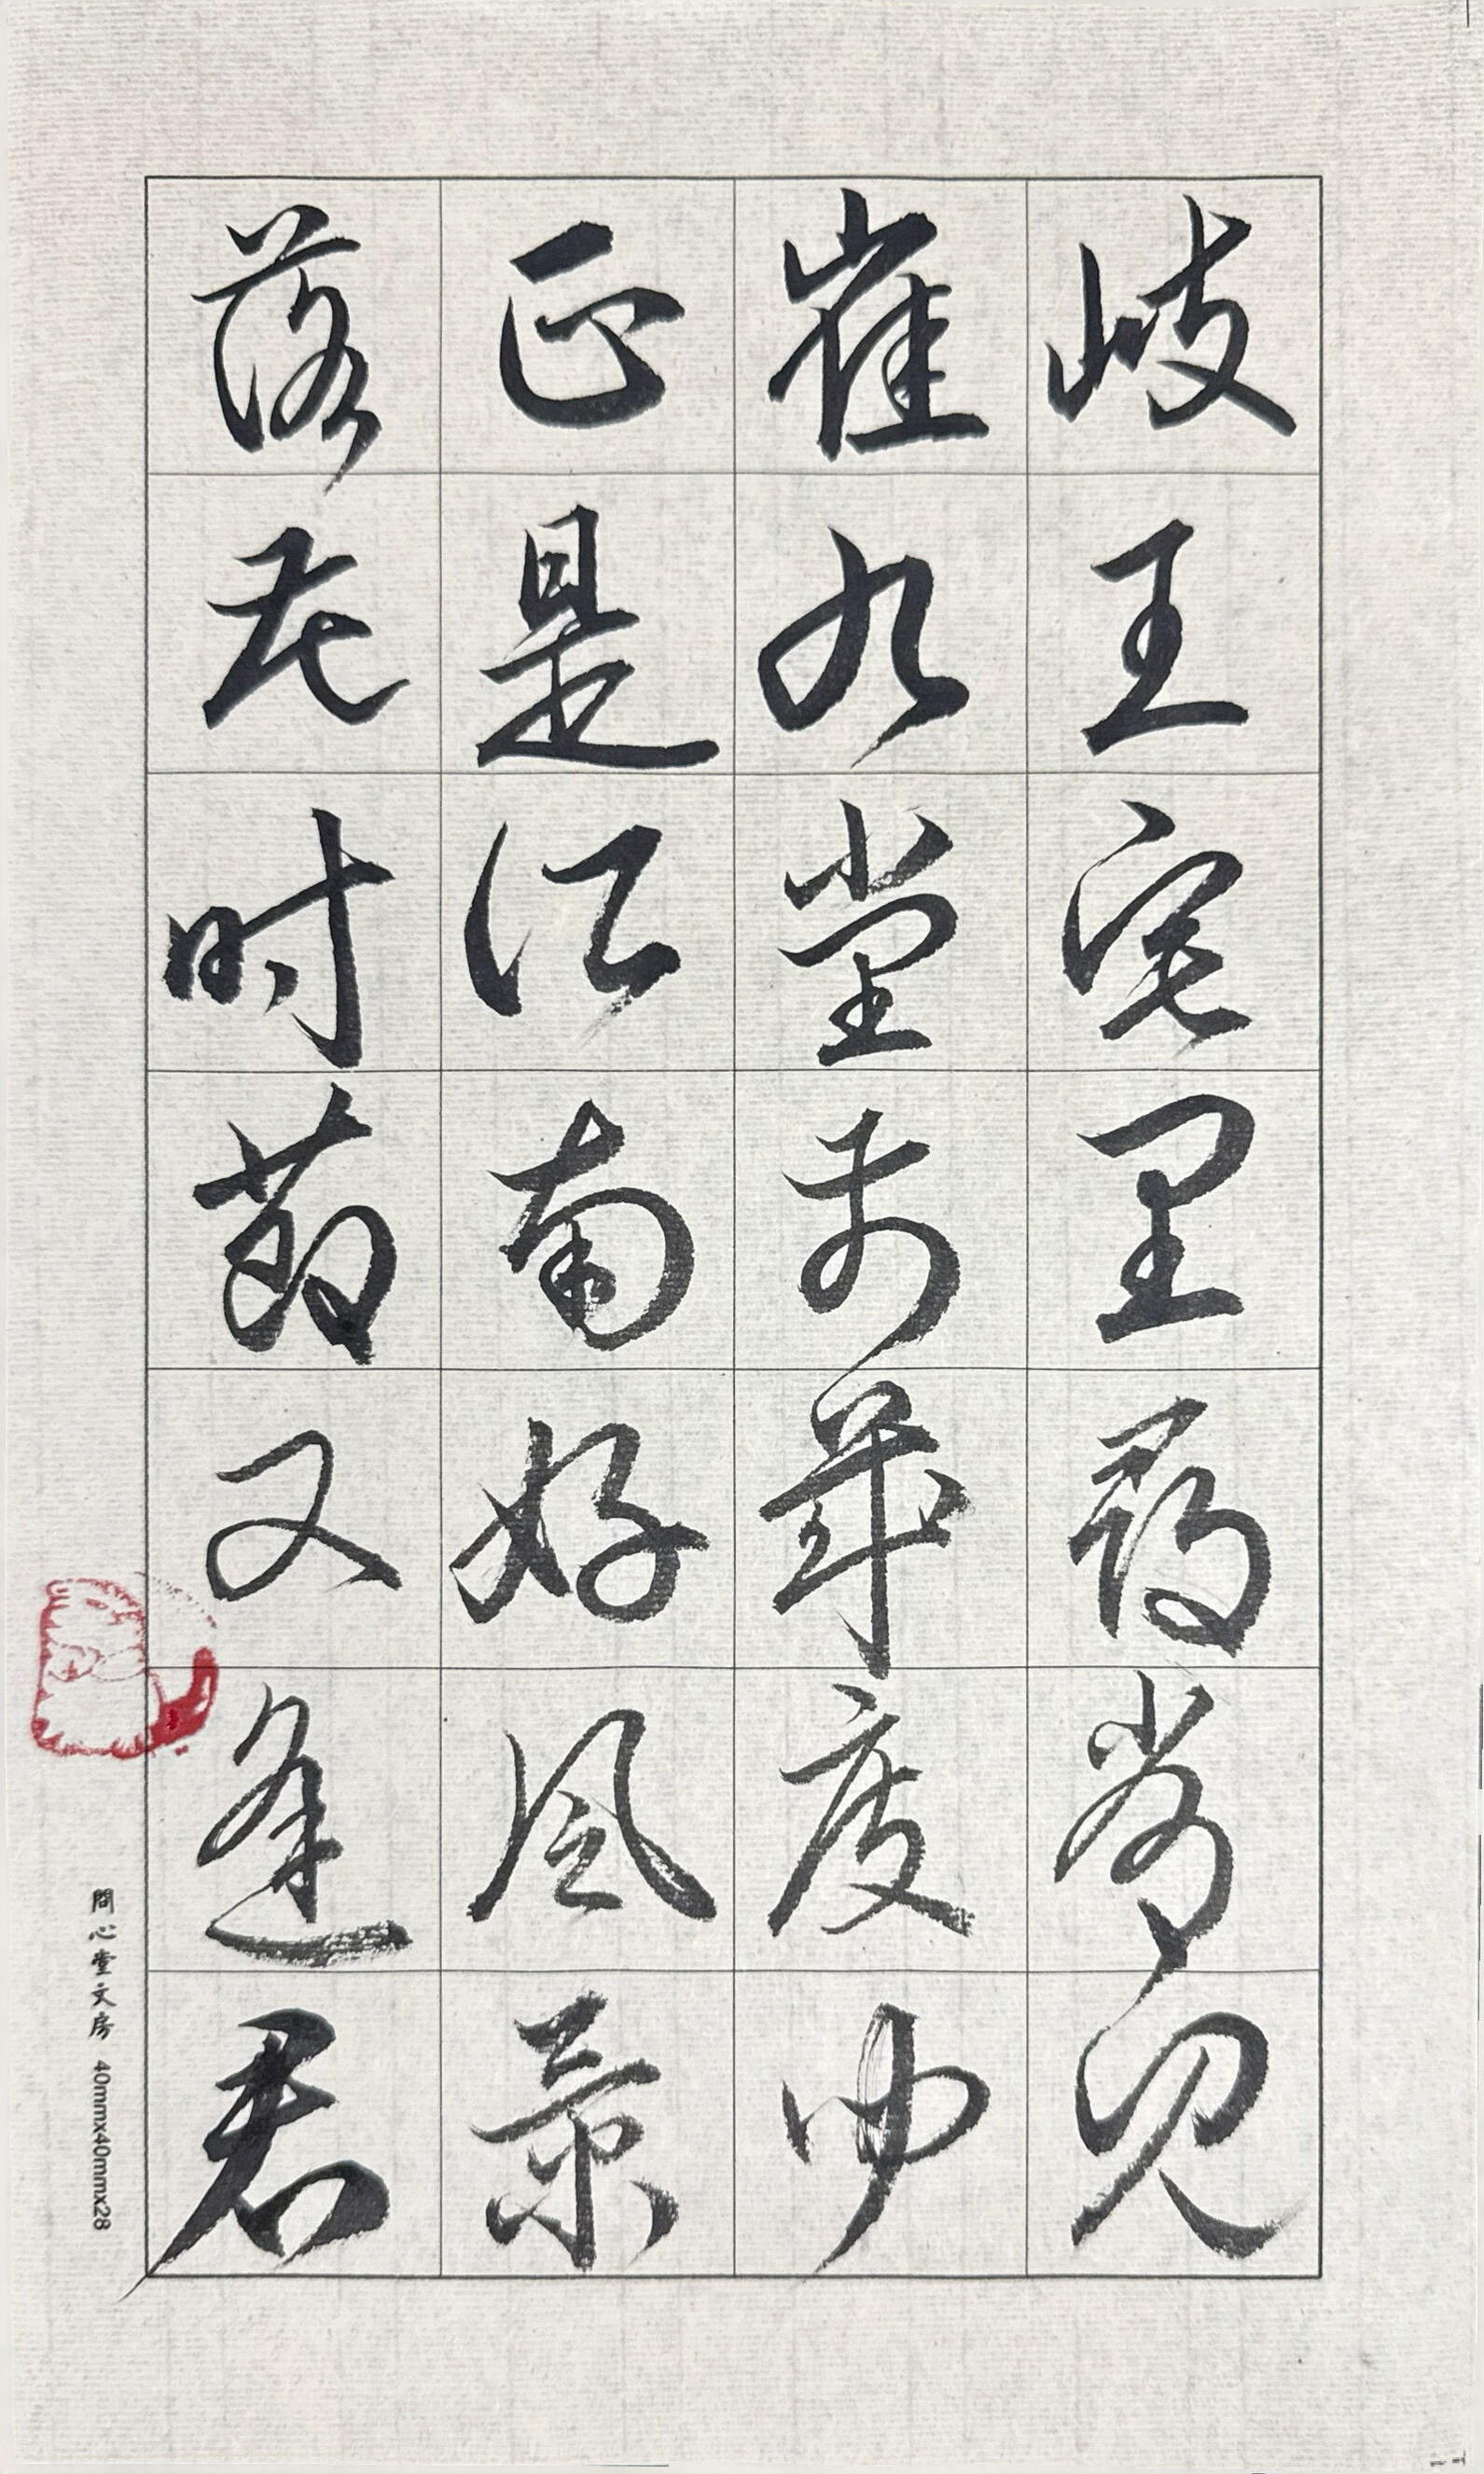 岐王宅里尋常見
崔九堂前幾度聞
正是江南好風景
落花时節又逢君
問心堂文房 40mmx40mmx28